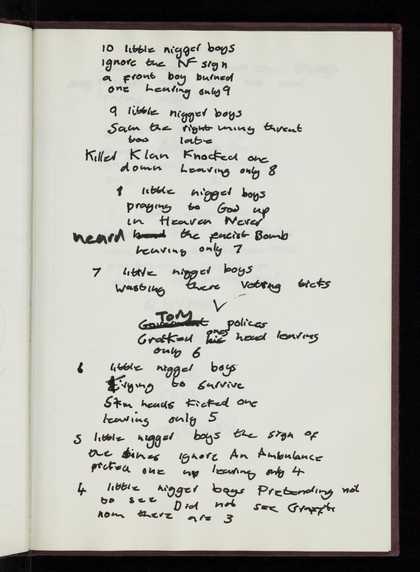 10 little nigger boys
ignore the NF sign
a front boy burned
one leaving only 9
9 little nigger boys
Saw the right wing threat
too late
Killer Klan Knocked one
down Leaving only 8
8 little nigger boys
praying to God up
in Heaven Never
heard the facist Bomb
Leaving only 7
7 little nigger boys
wasting there voting bits
TORY
Government polices
Cracked ones head leaving
only 6
6 little nigger boys
trying to survive
Skin heads kicked one
leaving only 5
5 little nigger boys the sign of
the times ignore An Ambulance
picked one up leaving only 4
4 little nigger boys Pretending not
to see Did not see
now there are 3